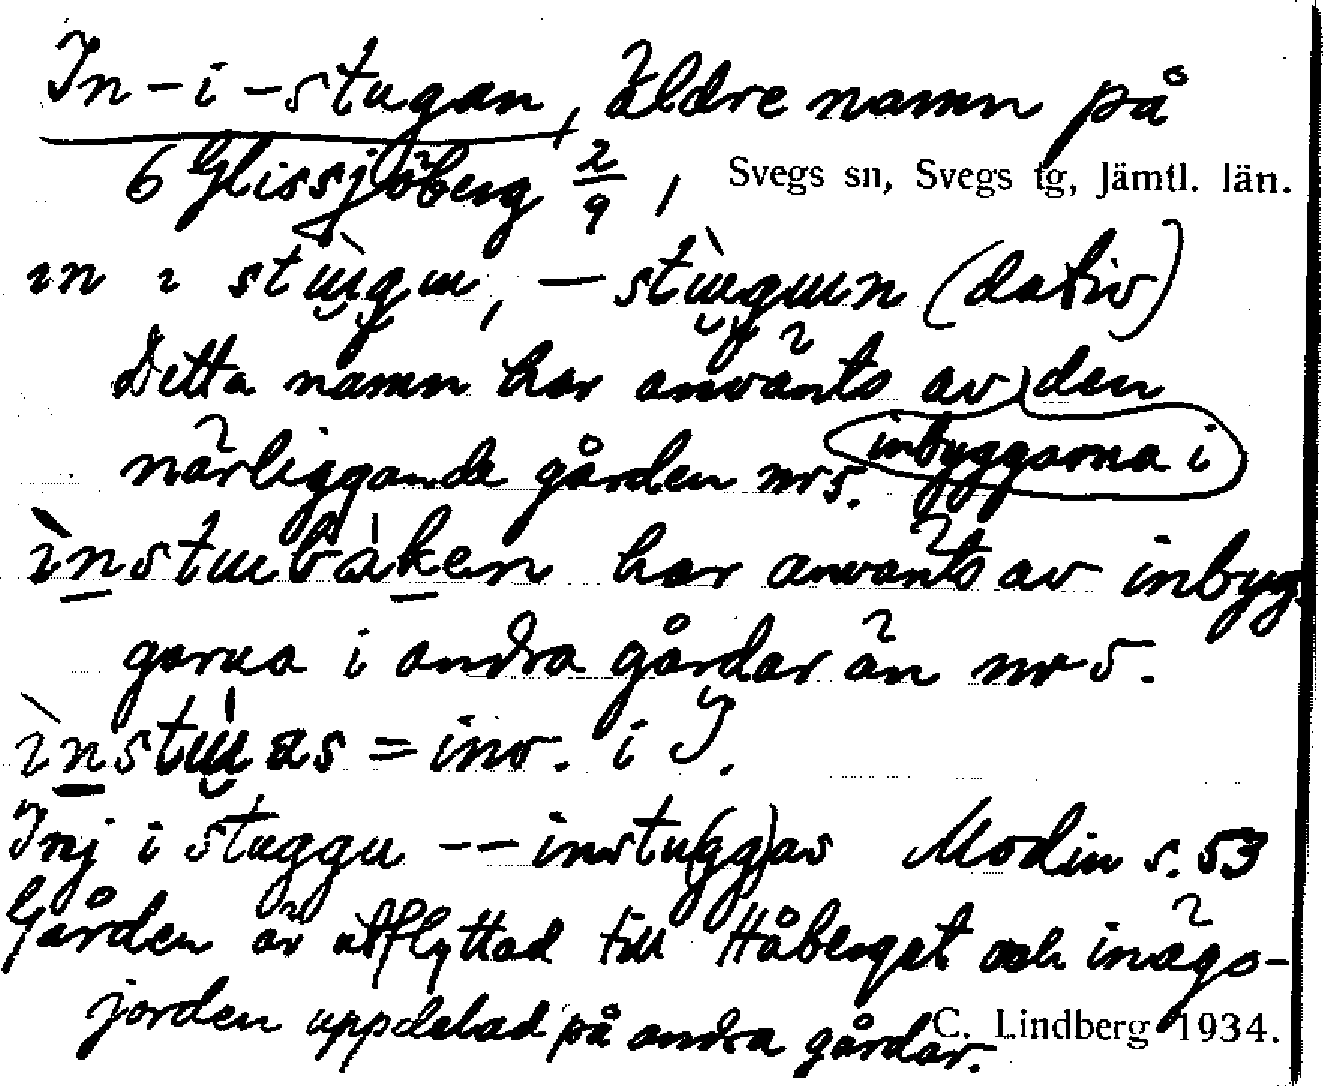 In-i-stugan, Äldre namn på
6 Glissjöberg 2/9, Svegs sn, Svegs tg, Jämtl. län.
ın ı stùgu, – stùgun (dativ)
Detta namn har använts av inbyggarna i den
närliggande gården nr 5.
ìnstubàken har använts av inbyg-
garna i andra gårdar än nr 5.
ìnstùas = inv. i I.
Inj i stuggu -- instu(gg)as Modin s. 53
Gården är utflyttad till Håberget och inägo-
jorden uppdelad på andra gårdar.
C. Lindberg 1934.